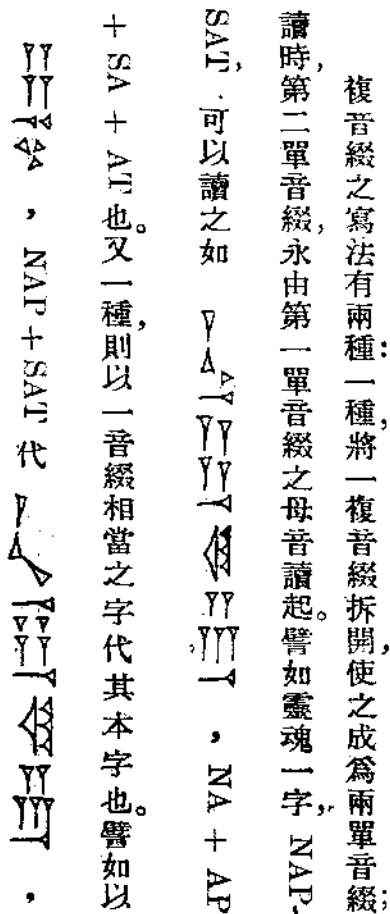 複音綴之寫法有兩種:一種,將一複音綴拆開,使之成爲兩單音綴;
讀時,第二單音綴,永由第一單音綴之母音讀起。譬如靈魂一字,NAP,
SAT,可以讀之如 , NA + AP
+ SA + AT也。又一種,則以一音綴相當之字代其本字也。譬如以
, NAP+SAT代 ,